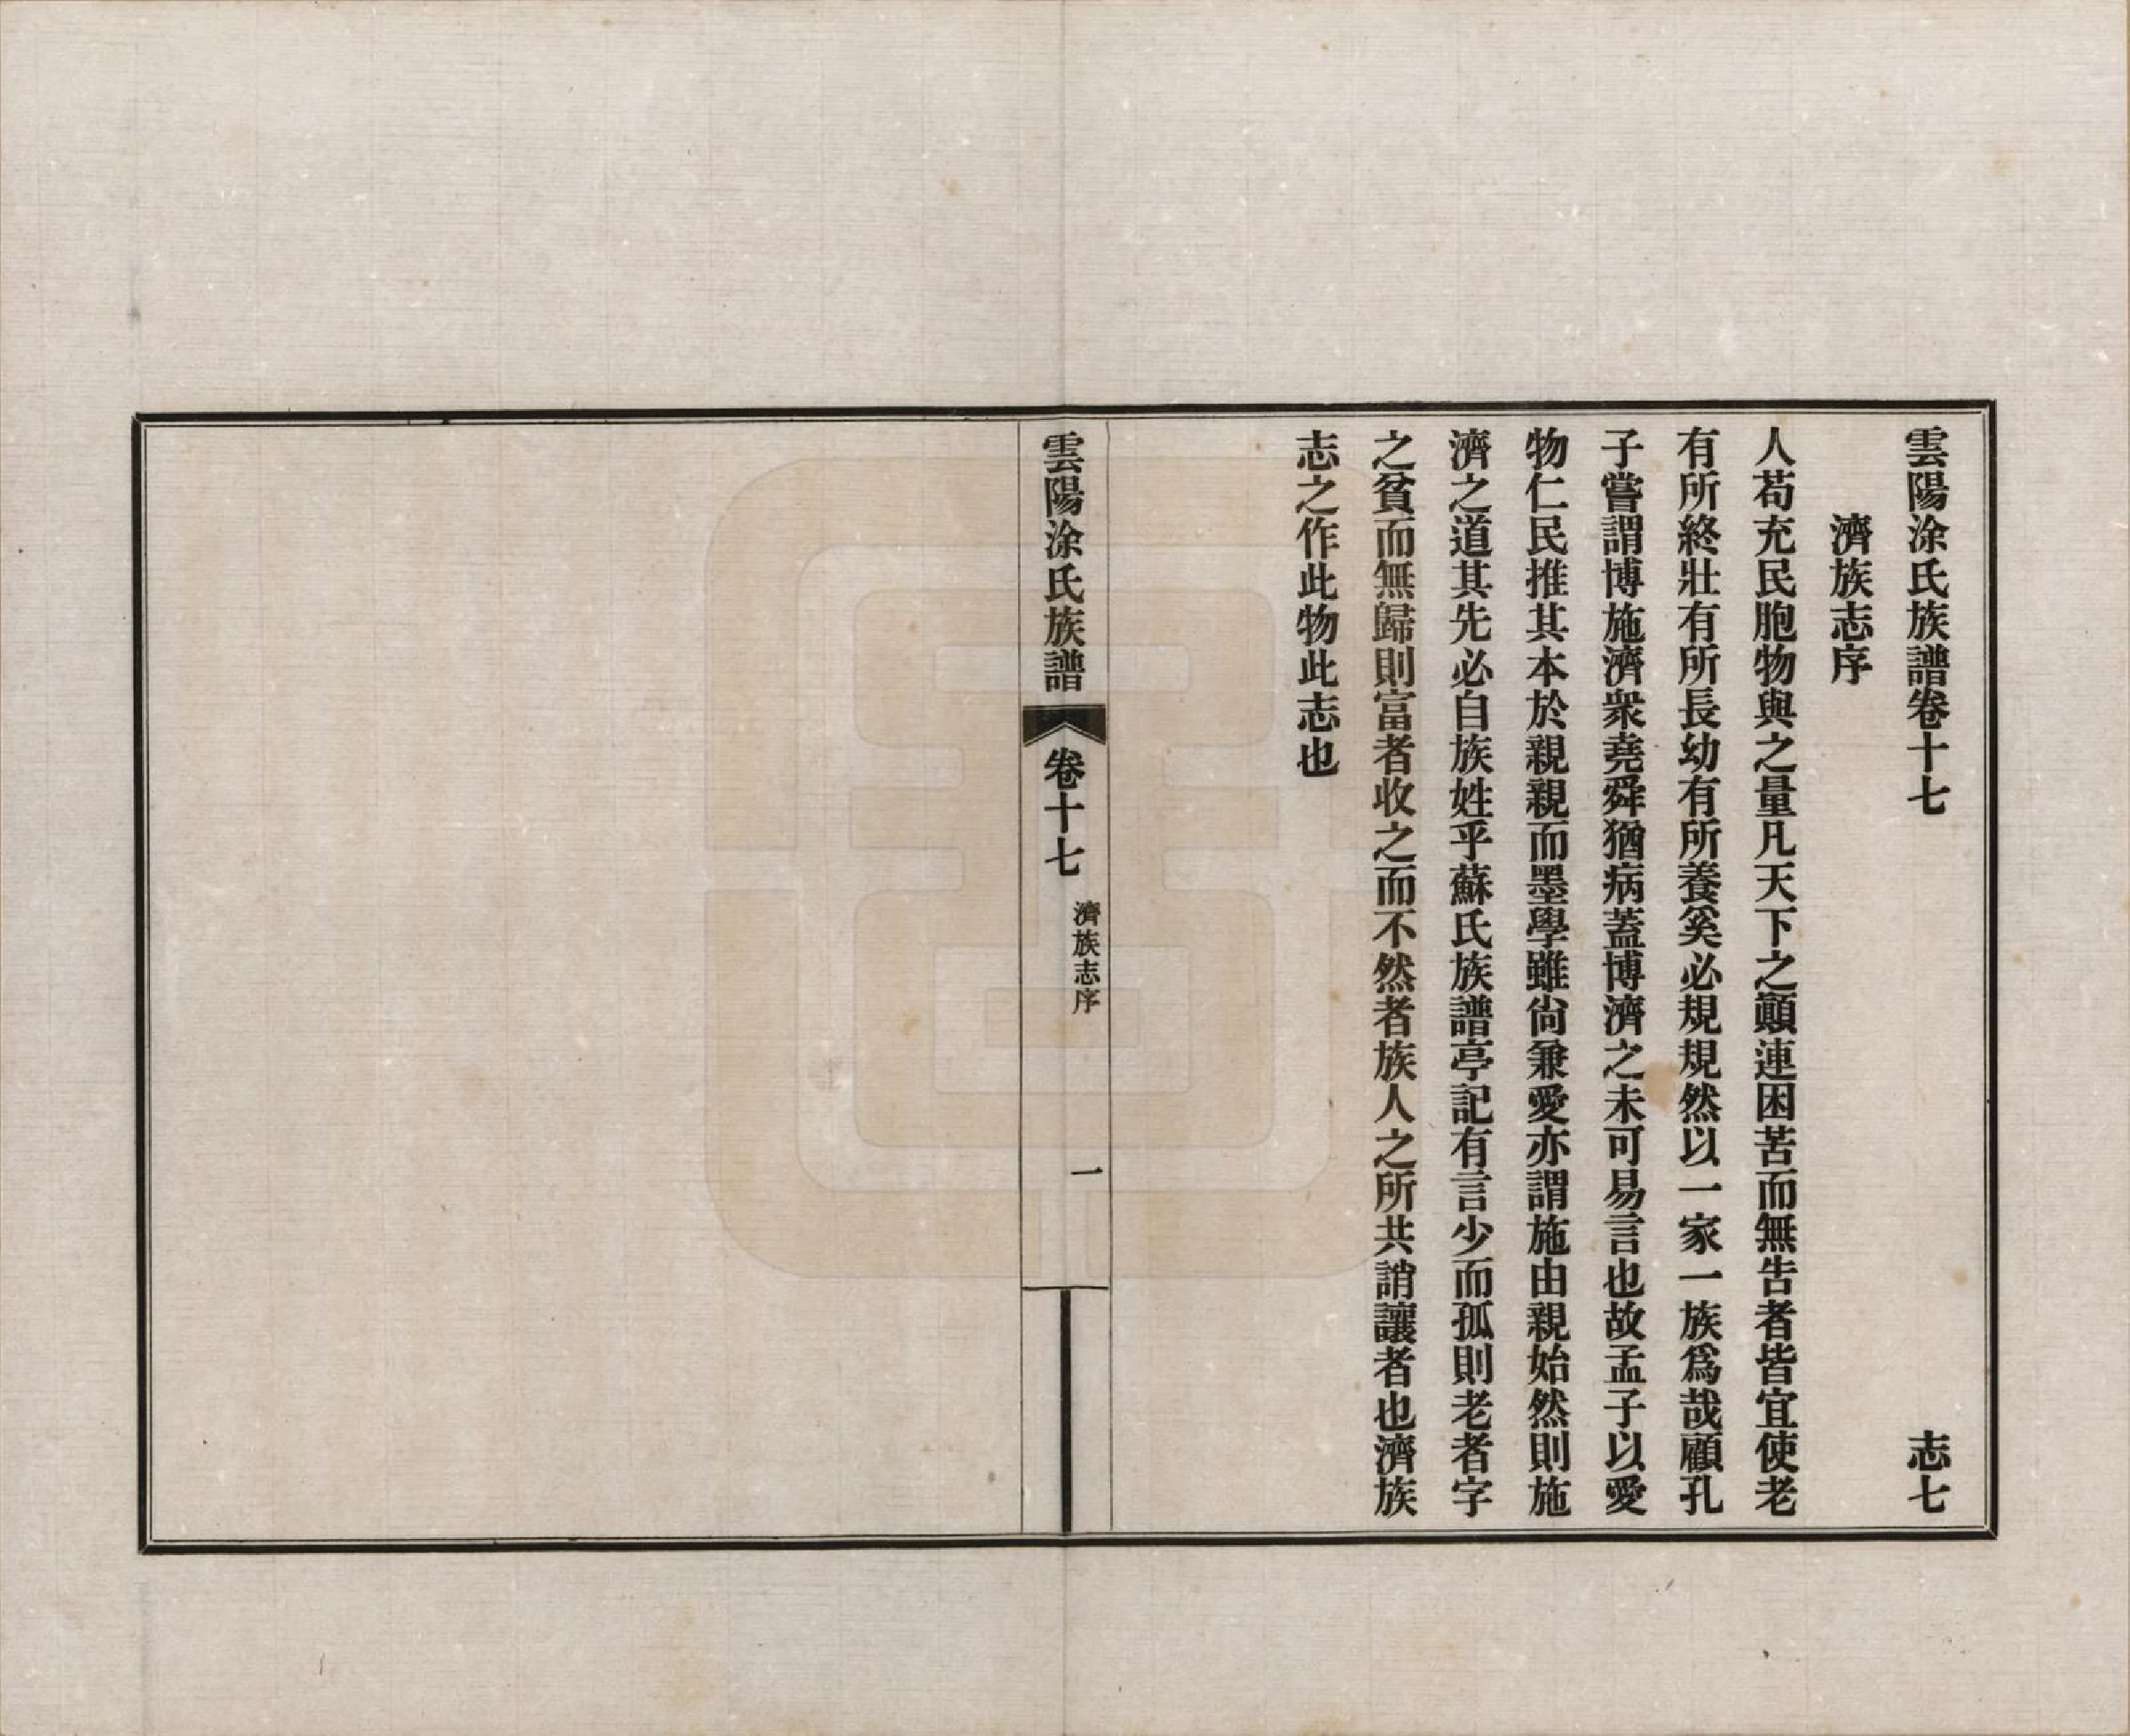 雲陽涂氏族譜卷十七　志七
濟族志序
人苟充民胞物與之量凡天下之顚連困苦而無告者皆宜使老
有所終壯有所長幼有所養奚必規規然以一家一族爲哉顧孔
子嘗謂博施濟衆堯舜猶病蓋博濟之未可易言也故孟子以愛
物仁民推其本於親親而墨學雖尙兼愛亦謂施由親始然則施
濟之道其先必自族姓乎蘇氏族譜亭記有言少而孤則老者字
之貧而無歸則富者收之而不然者族人之所共誚讓者也濟族
志之作此物此志也
雲陽涂氏族譜　卷十七　濟族志序　一